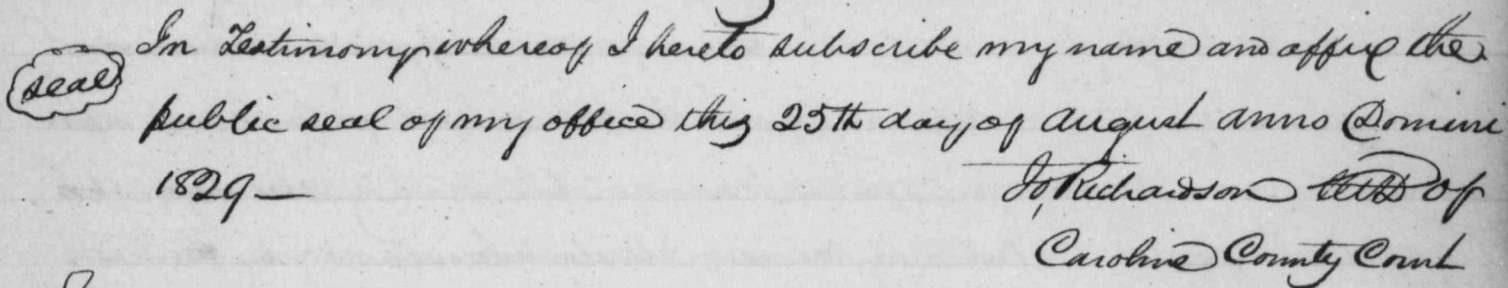 In Testimony whereof I hereto subscribe my name and affix the
seal
public seal of my office this 25th day of august anno Domini
1829 —
Jo, Richardson of
Caroline County Court